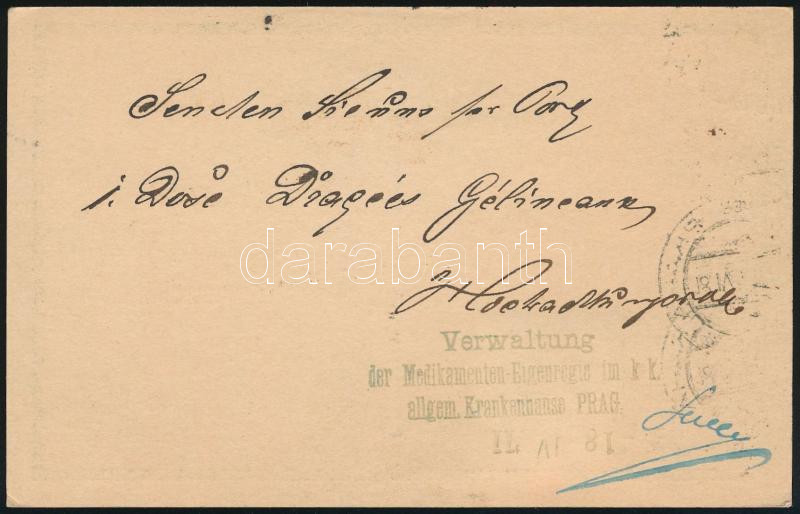 Senden Sie uns per Post
1. Dose Dragées Gélineaux
darabanth
Hochachtungsvoll
Verwaltung
der Medikamenten-Eigenregie im k. k.
allgem. Krankenhause PRAG.
VI